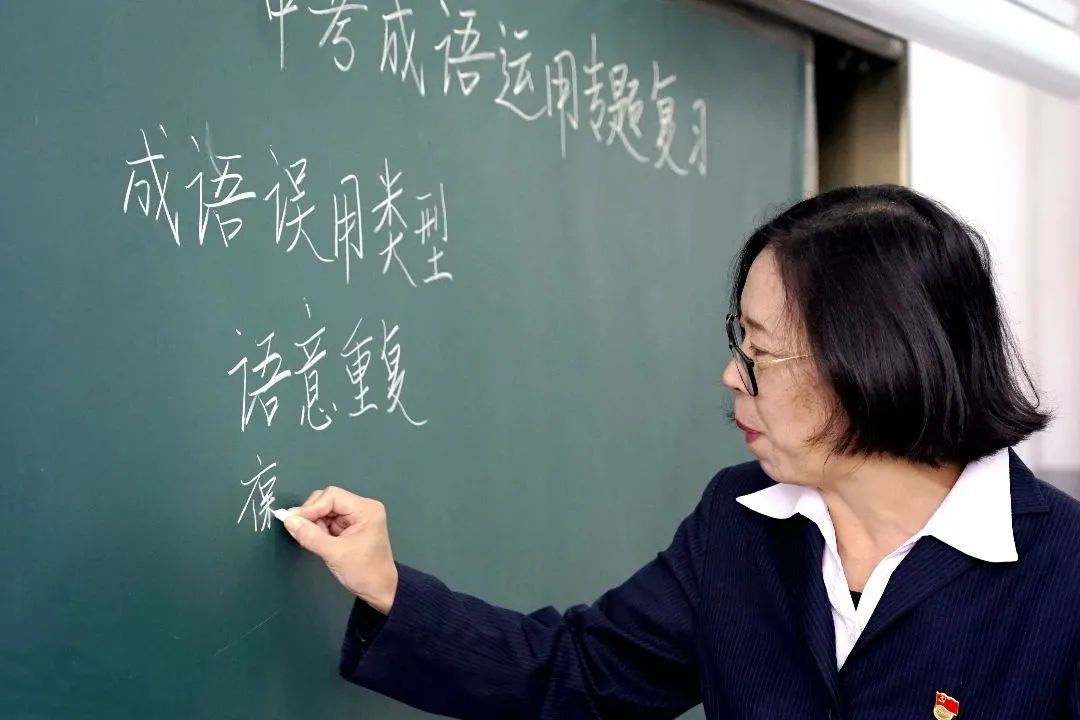 中考成语运用专题复习
成语误用类型
语意重复
褒